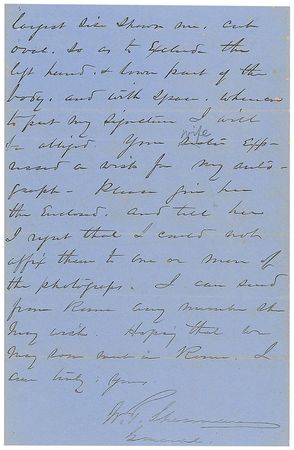 largest size shown me, cut
oval. So as to Exclude the
left hand. & lower part of the
body. and with space. whereon
to put my signature I will
be obliged. Your wife
sister Exp-
ressed a wish for my auto-
graph - Please give her
the Enclosed. and tell her
I regret that I could not
affix them to one or more of
the photographs. I can send
from Rome any number she
may wish. Hoping that we
may soon meet in Rome. I
am truly, yours
W. T. Sherman
General.